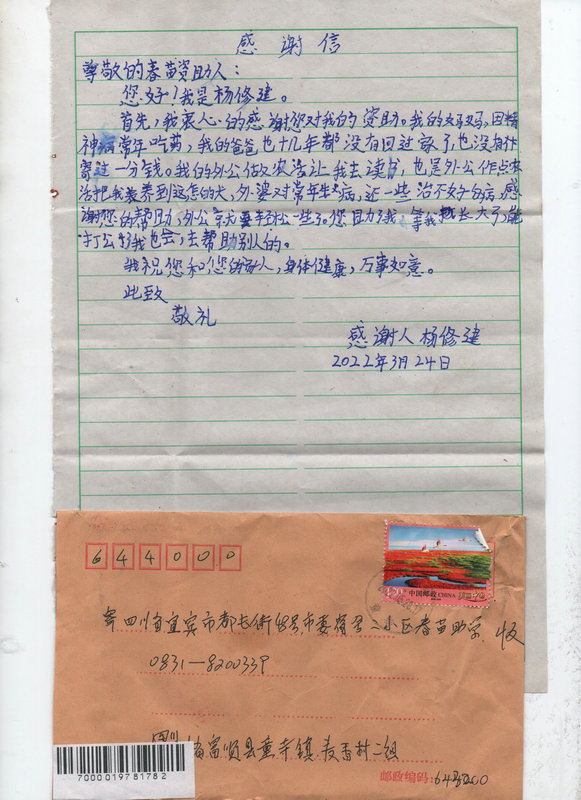 感谢信
尊敬的春苗资助人：
您好！我是杨修建。
首先，我衷心的感谢您对我的资助。我的妈妈，因精
神病常年吃药，我的爸爸也十几年都没有回过家了也没有什
寄过一分钱。我的外公做农活让我去读书，也是外公作点农
活把我养到这怎的大，外婆对常年生病，近一些治不好的病，感
谢您的帮助，外公就要轻松一些了。您助我，等我成长大了能
打工我也会，去帮助别人的。
我祝您和您的家人，身体健康，万事如意。
此致
敬礼
感谢人 杨修建
2022年3月24日
644000
1.20元 中国邮政 CHINA
寄四川省宜宾市都长街48号市委宿舍二小区春苗助学 收
0831—8200339
四川省富顺县童寺镇 村二组
7000019781782
邮政编码：